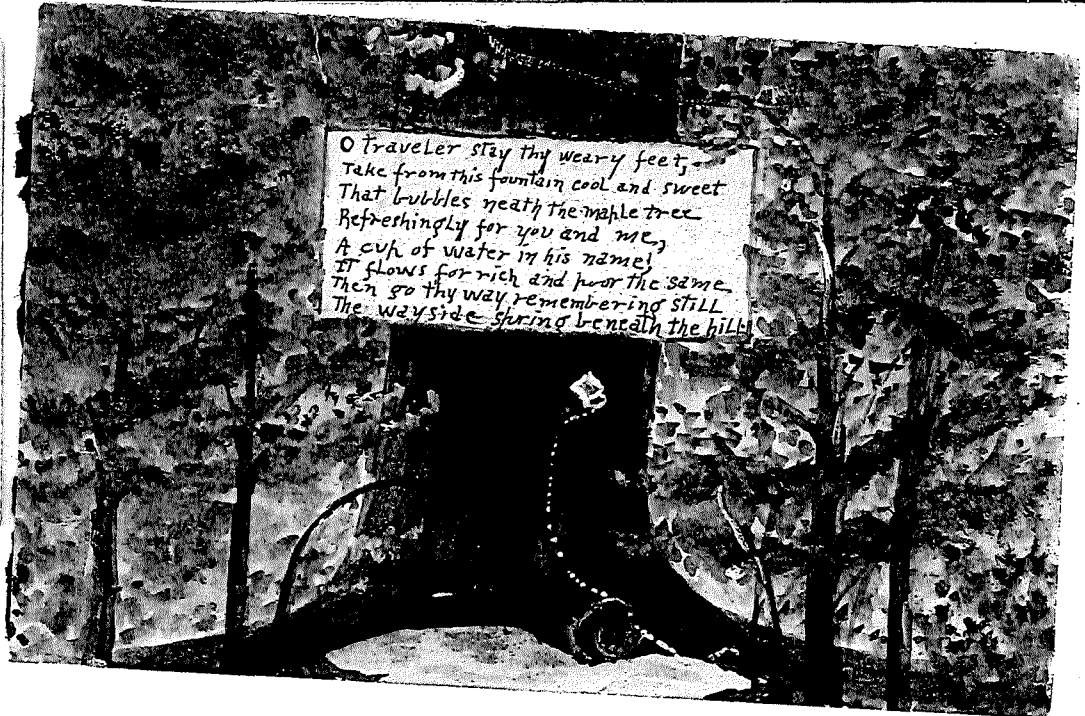 O Traveler stay thy weary feet,
Take from this fountain cool and sweet
That bubbles neath the maple tree
Refreshingly for you and me,
A cup of water in his name!
IT flows for rich and poor the same
Then go thy way remembering still
The wayside spring beneath the hill